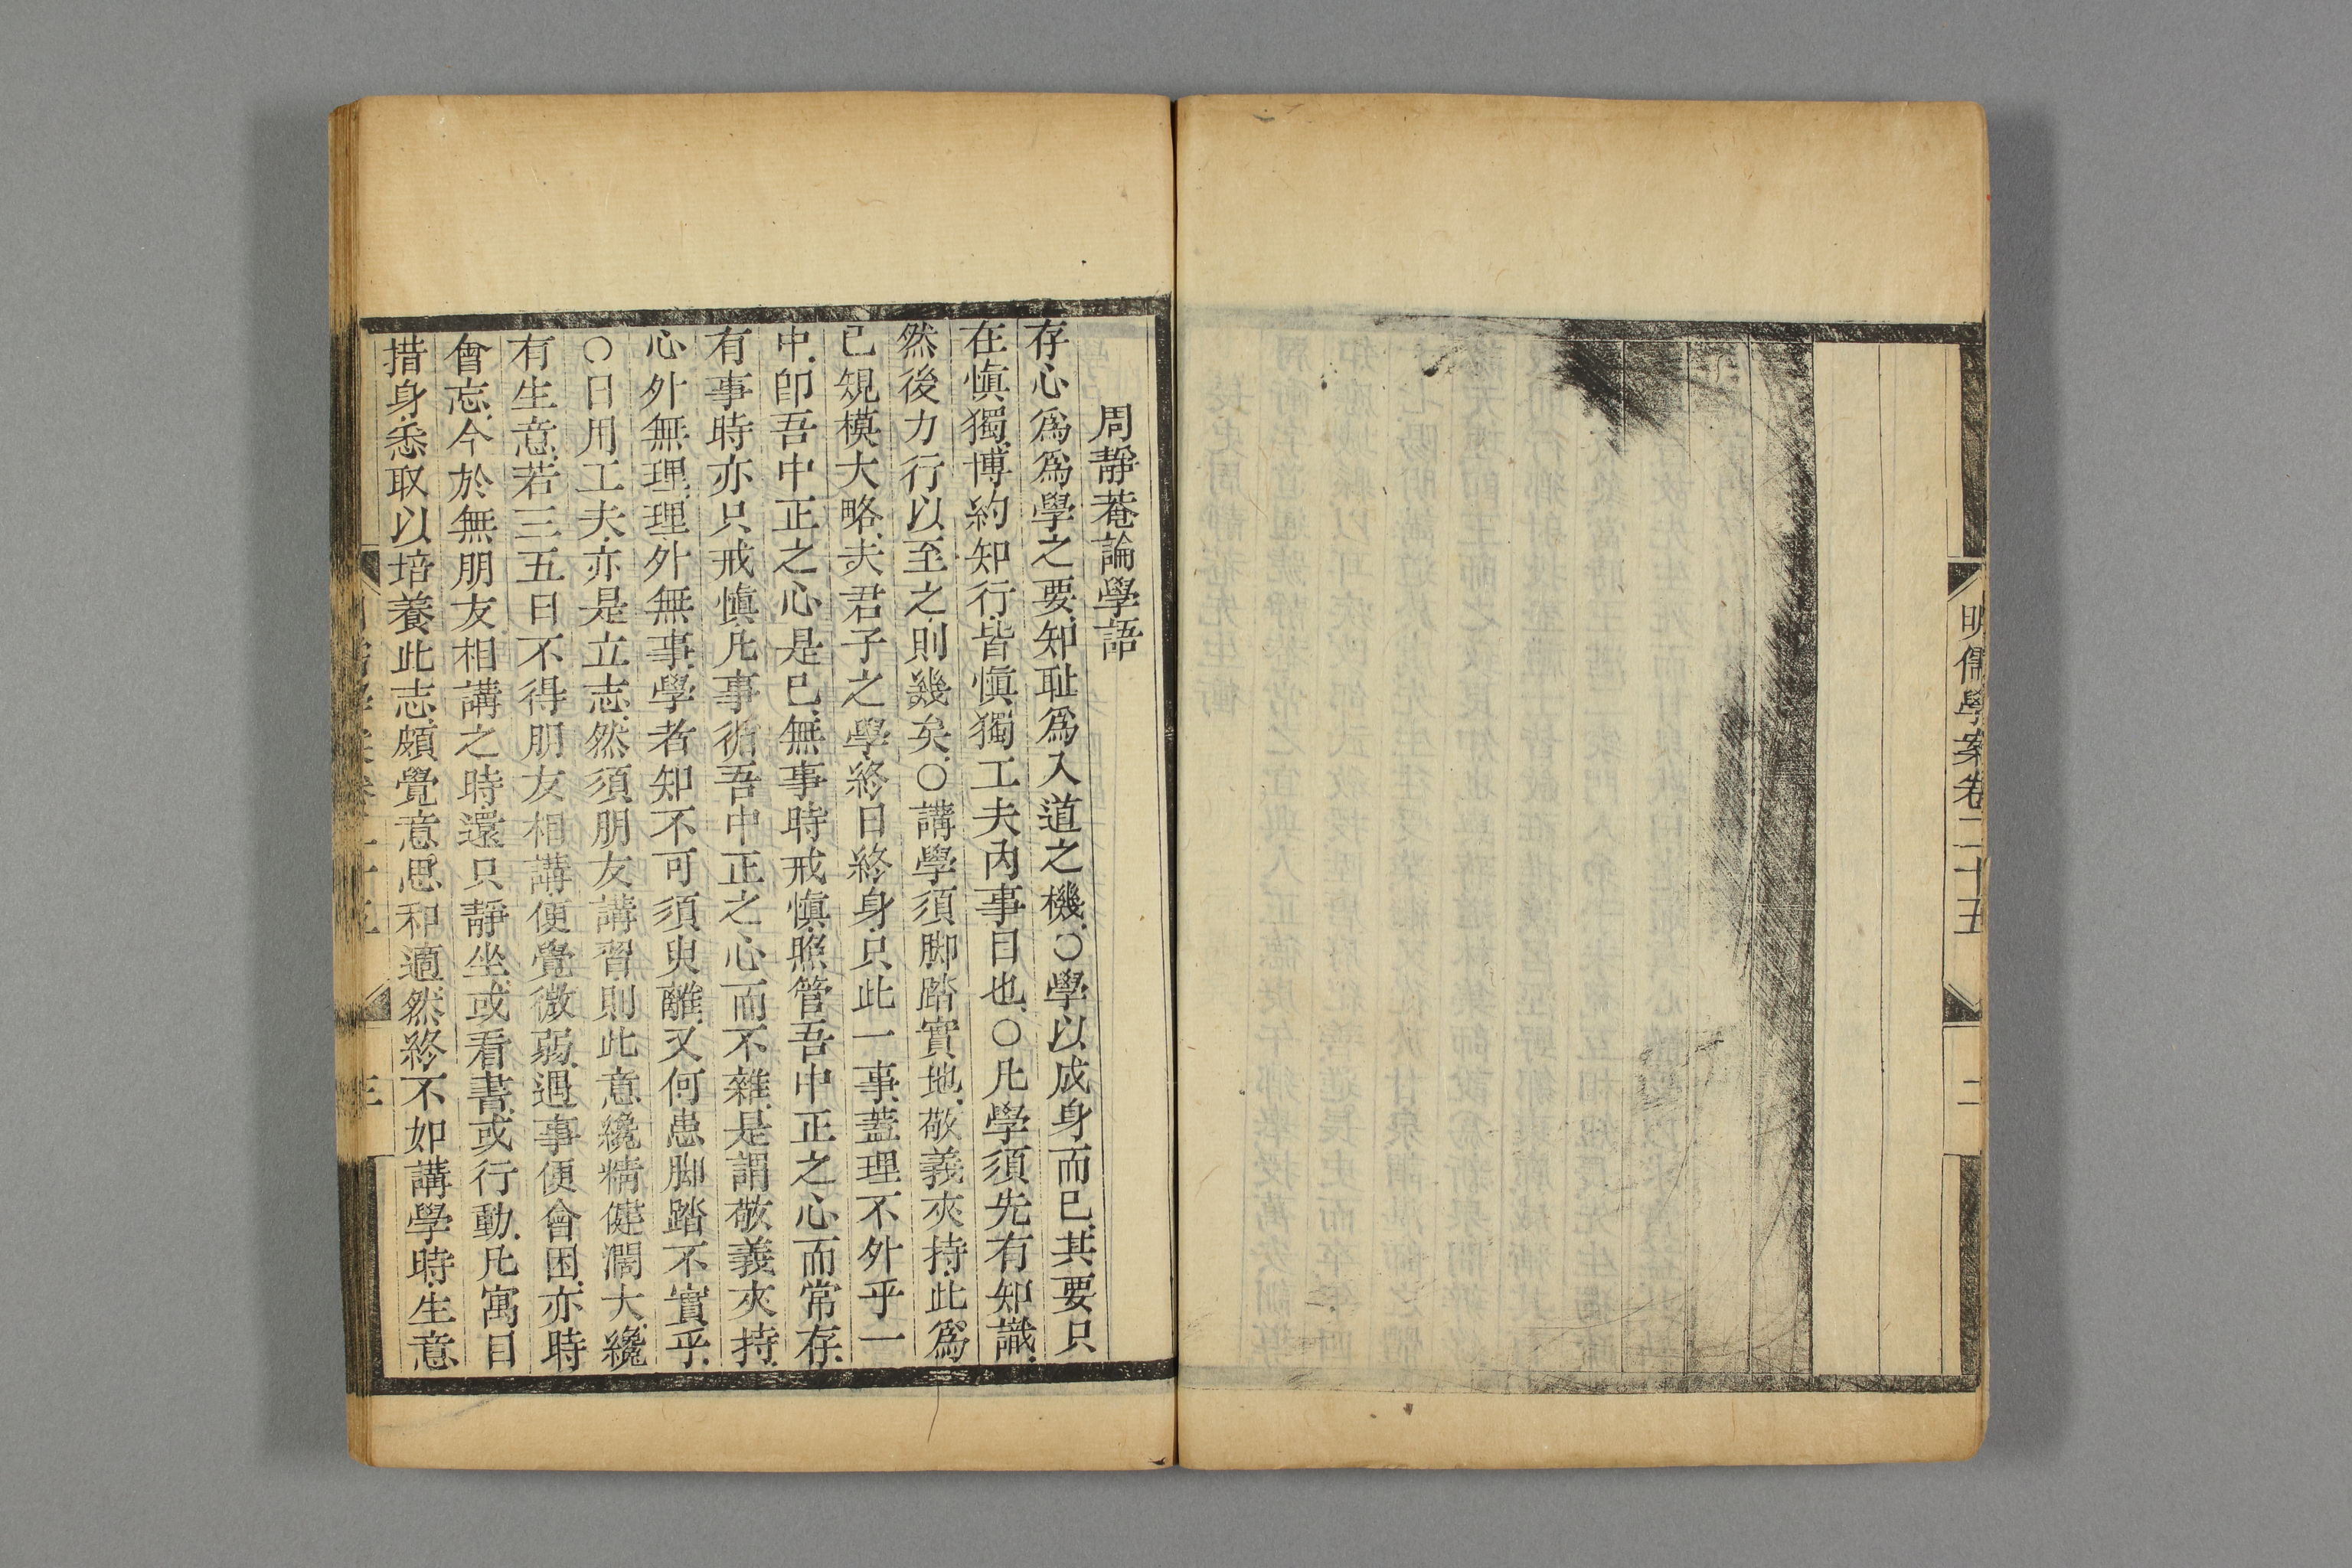 明儒學案卷二十五
二
周靜菴論學語
存心爲爲學之要知耻爲入道之機○學以成身而已其要只
在愼獨博約知行皆愼獨工夫內事目也○凡學須先有知識
然後力行以至之則幾矣○講學須脚踏實地敬義夾持此爲
已規模大略夫君子之學終日終身只此一事葢理不外乎一
中卽吾中正之心是已無事時戒愼照管吾中正之心而常存
有事時亦只戒愼凡事循吾中正之心而不雜是謂敬義夾持
心外無理理外無事學者知不可須臾離又何患脚踏不實乎
○日用工夫亦是立志然須朋友講習則此意纔精健濶大纔
有生意若三五日不得朋友相講便覺微弱遇事便會困亦時
會忘今於無朋友相講之時還只靜坐或看書或行動凡寓目
措身悉取以培養此志頗覺意思和適然終不如講學時生意
三